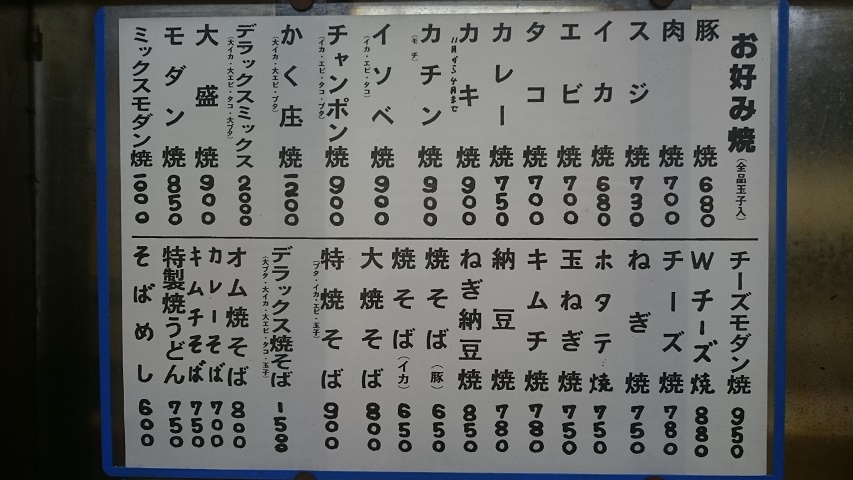 お好み焼(全品玉子入)
豚焼 680
肉焼 700
スジ焼 730
イカ焼 680
エビ焼 700
タコ焼 700
カレー焼 750
カキ焼 900
11月から4月まで
カチン焼 900
(モチ)
イソベ焼 900
(イカ・エビ・タコ)
チャンポン焼 900
(イカ・エビ・タコ・ブタ)
かく庄焼 1200
(大イカ・大エビ・ブタ)
デラックスミックス 2000
(大イカ・大エビ・タコ・大ブタ)
大盛焼 900
モダン焼 850
ミックスモダン焼 1000
チーズモダン焼 950
Wチーズ焼 880
チーズ焼 780
ねぎ焼 750
ホタテ焼 750
玉ねぎ焼 750
キムチ焼 780
納豆焼 780
ねぎ納豆焼 850
焼そば(豚) 650
焼そば(イカ) 650
大焼そば 800
特焼そば 900
(ブタ・イカ・エビ・玉子)
デラックス焼そば 1500
(大ブタ・大イカ・大エビ・タコ・玉子)
オム焼そば 800
カレーそば 700
キムチそば 750
特製焼うどん 750
そばめし 600